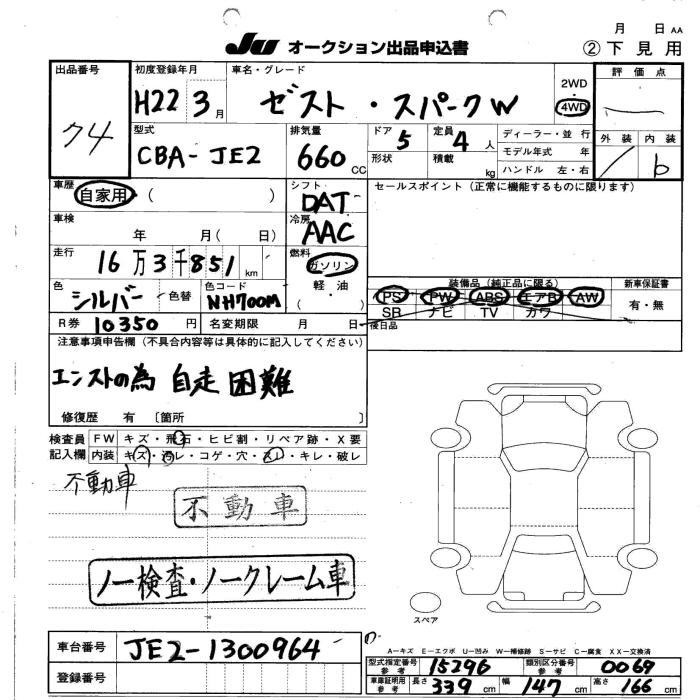 月 日 AA
JU オークション出品申込書 ②下見用
出品番号 初度登録年月 車名・グレード 評価点
H22 3月 ゼスト・スパークW 2WD 4WD
型式 排気量 ドア 定員 ディーラー・並行 外装 内装
CBA-JE2 660 CC 5 4人 モデル年式 年
形状 積載 kg ハンドル 左・右 b
車歴 自家用 ( ) シフト DAT セールスポイント(正常に機能するものに限ります)
車検 年 月( 日) 冷房 AAC
走行 16万3千851km 燃料 ガソリン
色 シルバー 色替 色コード NH700M 軽・油 ( )
装備品(純正品に限る) 新車保証書
PS PW ABS エアB AW 有・無
SR ナビ TV カワ
R券 10350円 名変期限 月 日 後日品
注意事項申告欄(不具合内容等は具体的に記入してください)
エンストの為 自走困難
修復歴 有 〔箇所 〕
検査員 FW キズ・飛石・ヒビ割・リペア跡・X要
記入欄 内装 キズ・汚レ・コゲ・穴・スレ・キレ・破レ
不動車
不動車
ノー検査・ノークレーム車
スペア
車台番号 JE2-1300964
登録番号
A-キズ E-エクボ U-凹み W-補修跡 S-サビ C-腐食 XX-交換済
型式指定番号 参考 15296 類別区分番号 参考 0069
車庫証明用 参考 長さ 339 cm 幅 147 cm 高さ 166 cm